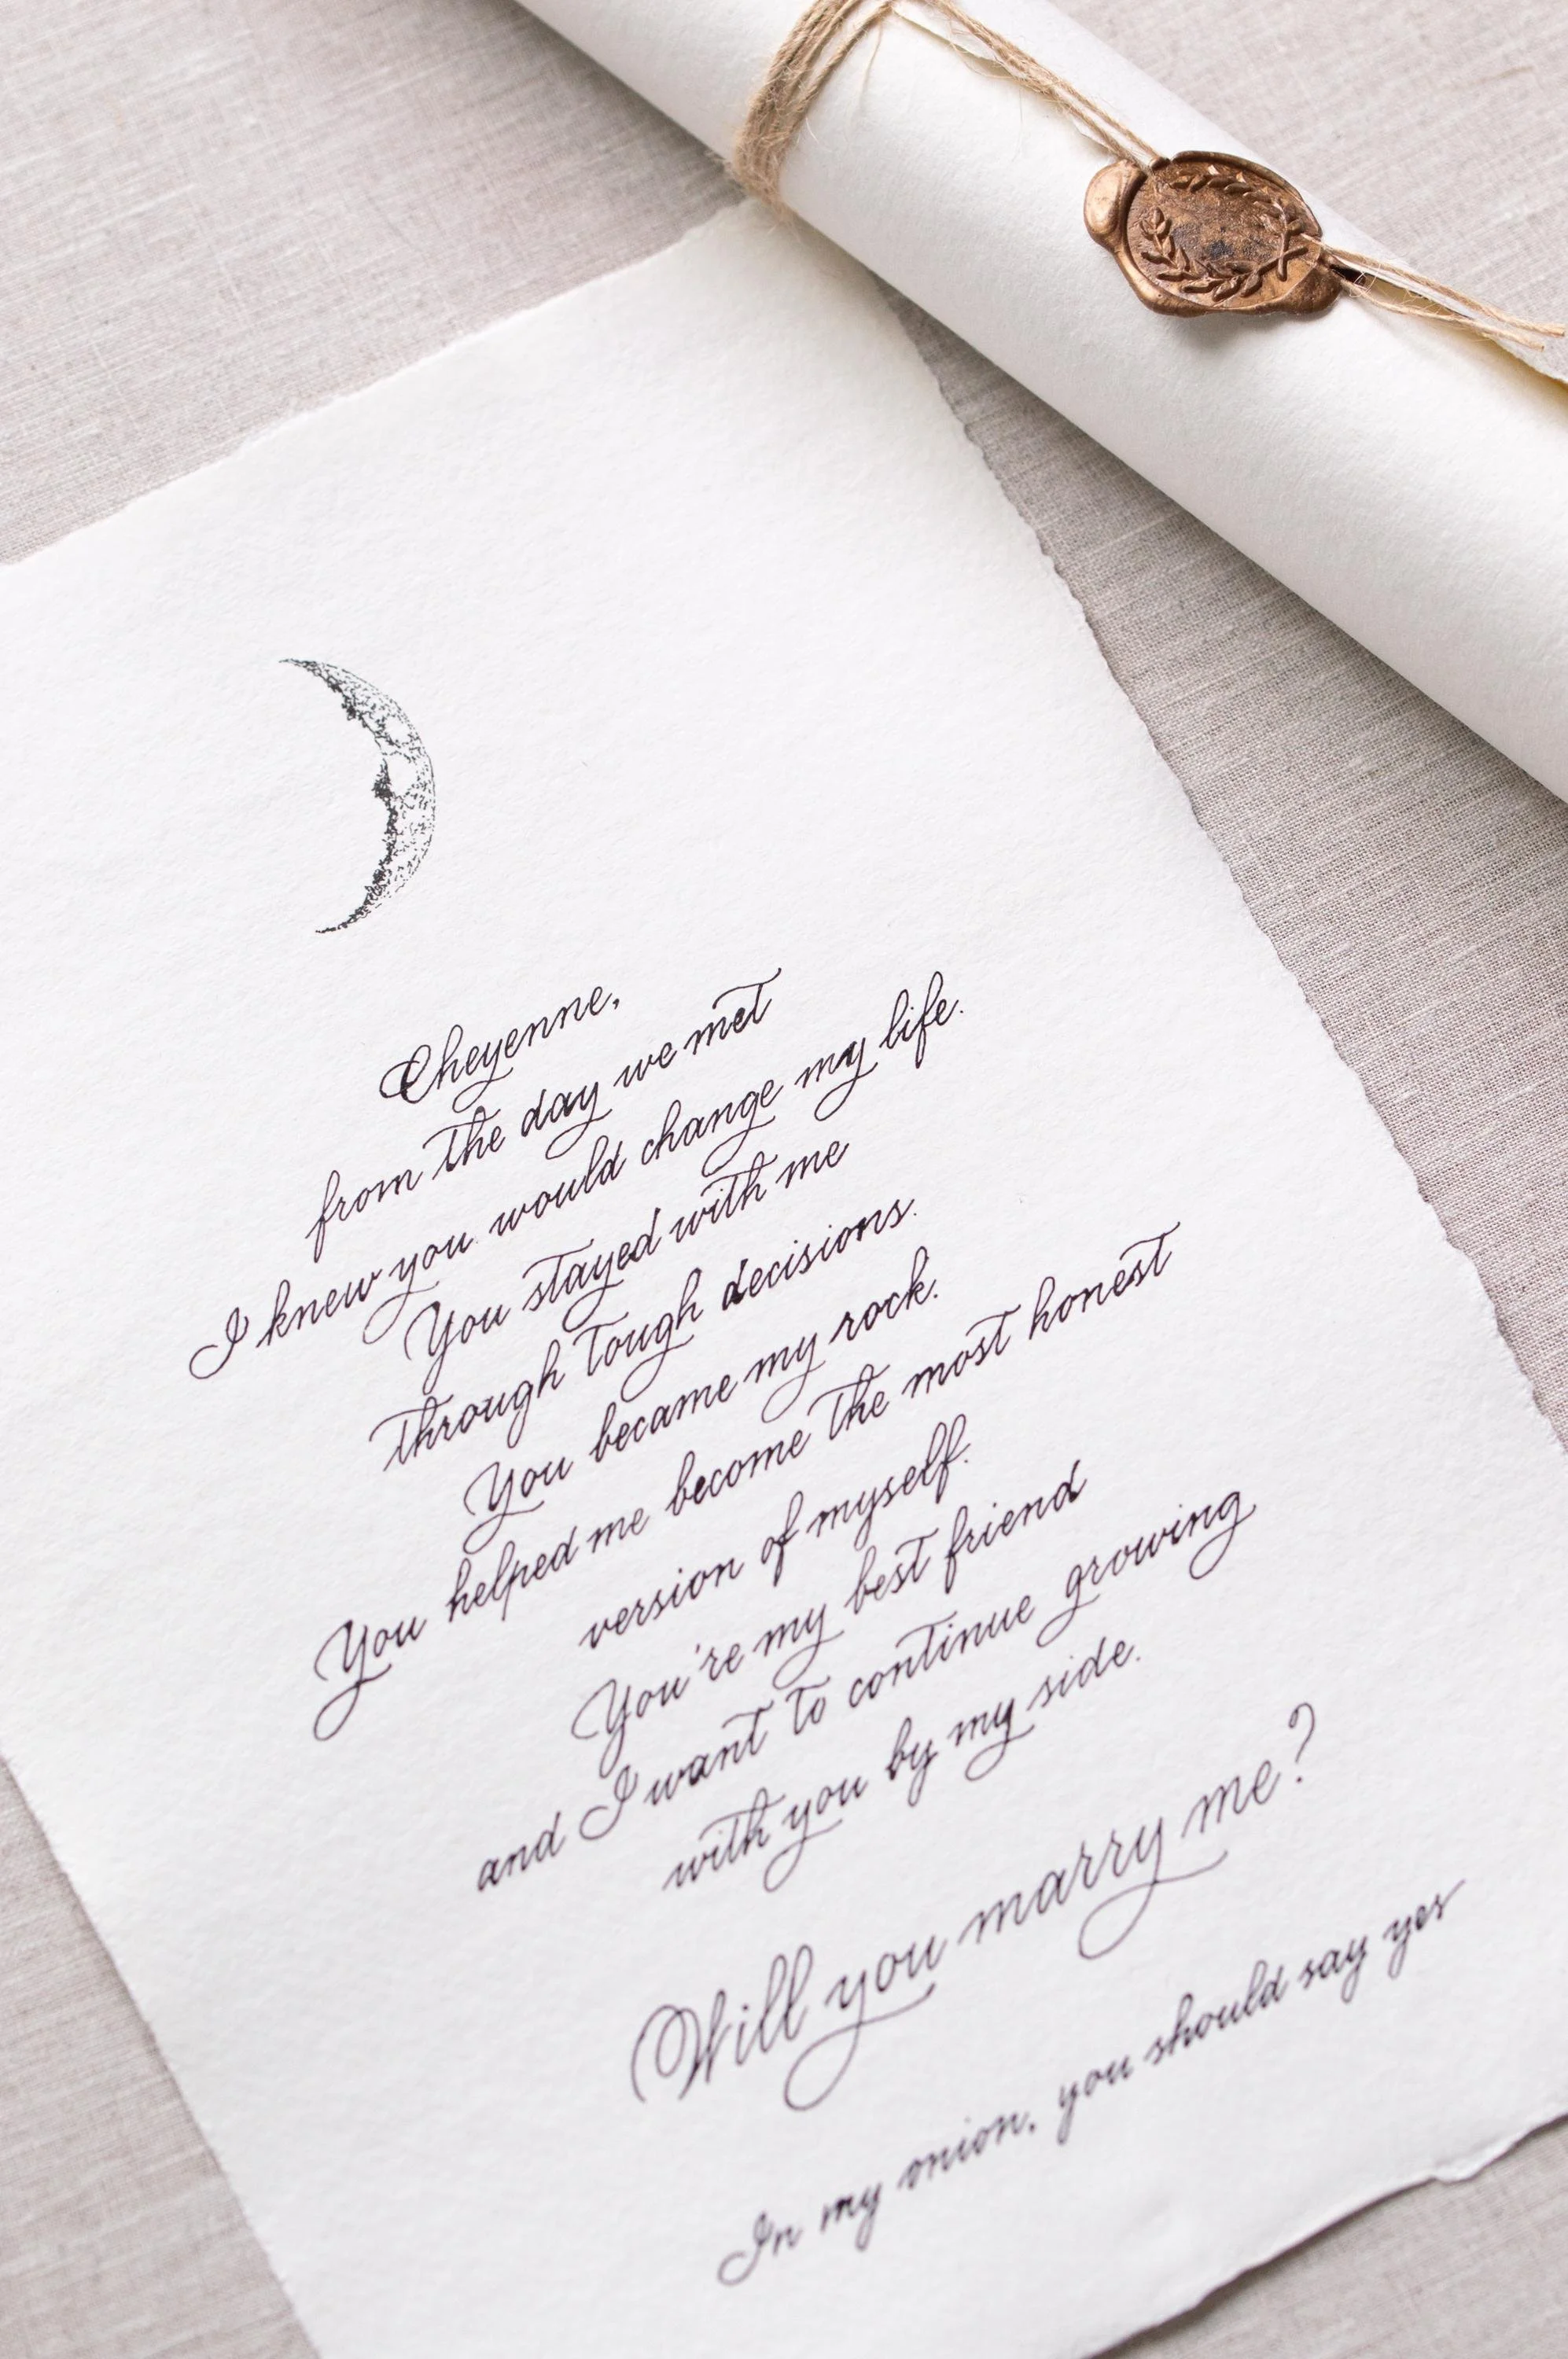 Cheyenne,
from the day we met
I knew you would change my life.
You stayed with me
through tough decisions.
You became my rock.
You helped me become the most honest
version of myself.
You're my best friend
and I want to continue growing
with you by my side.
Will you marry me?
In my onion, you should say yes